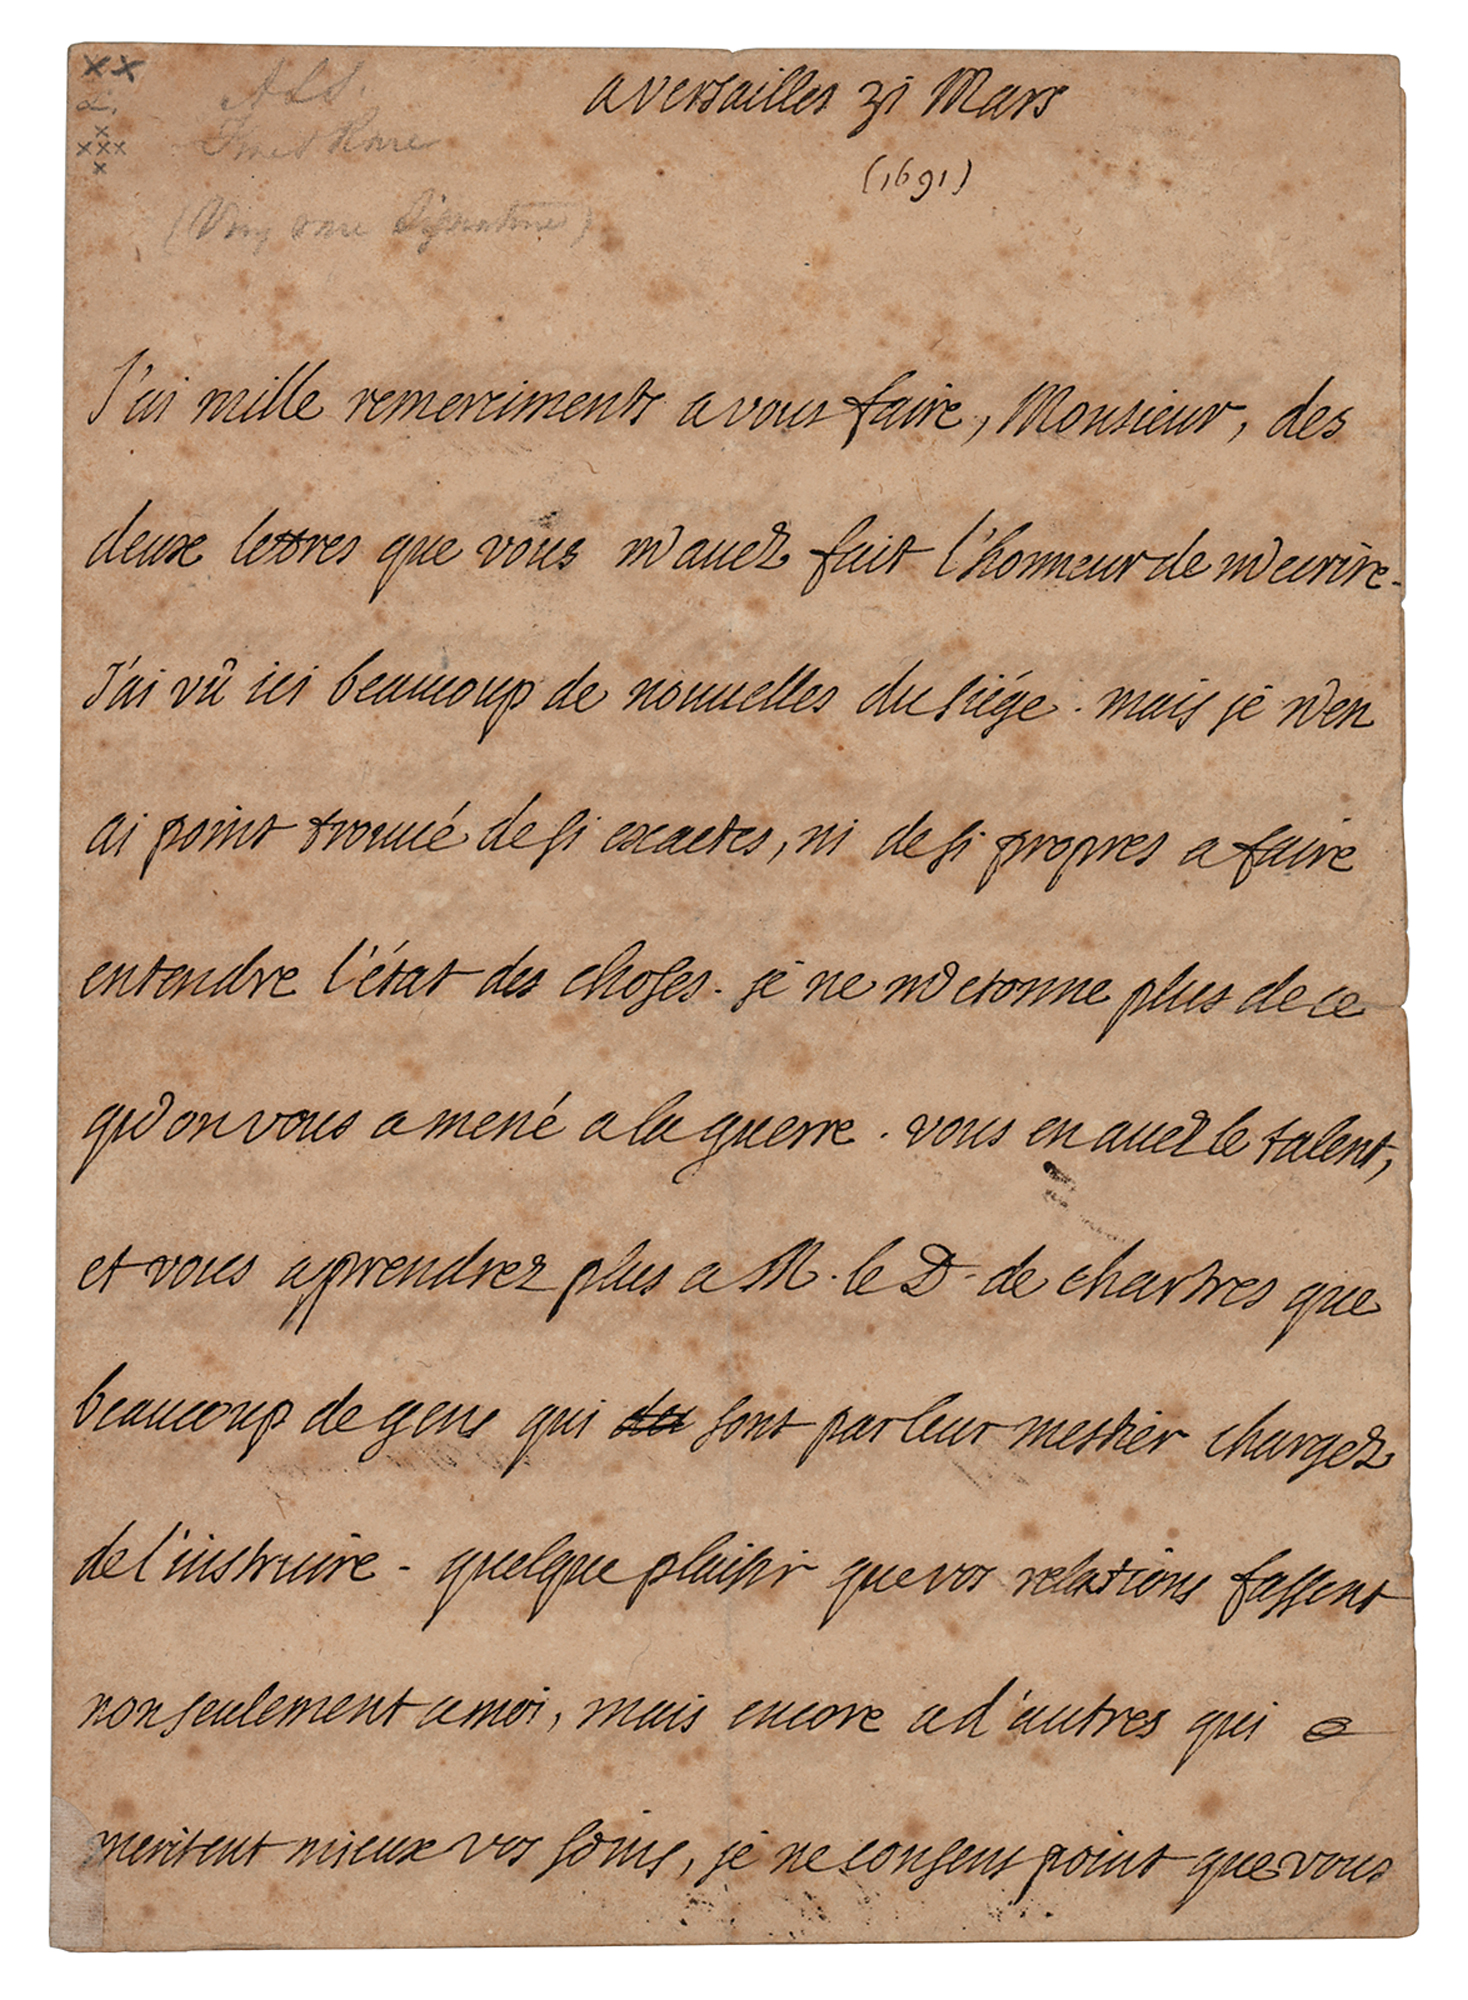 XX
L.
x
xxx
x
ALS.
(Very rare Signature)
a versailles 31 Mars
(1691)
J'ai mille remerciments a vous faire, Monsieur, des
deux lettres que vous m'auez fait l'honneur de m'ecrire.
J'ai vû ici beaucoup de nouuelles du siége. mais je n'en
ai point trouué de si exactes, ni de si propres a faire
entendre l'état des choses. je ne m'etonne plus de ce
qu'on vous a mené a la guerre. vous en auez le talent,
et vous apprendrez plus a M. le D. de chartres que
beaucoup de gens qui sont par leur mestier chargez
de l'instruire. quelque plaisir que vos relations fassent
non seulement a moi, mais encore a d'autres qui
meritent mieux vos soins, je ne consens point que vous